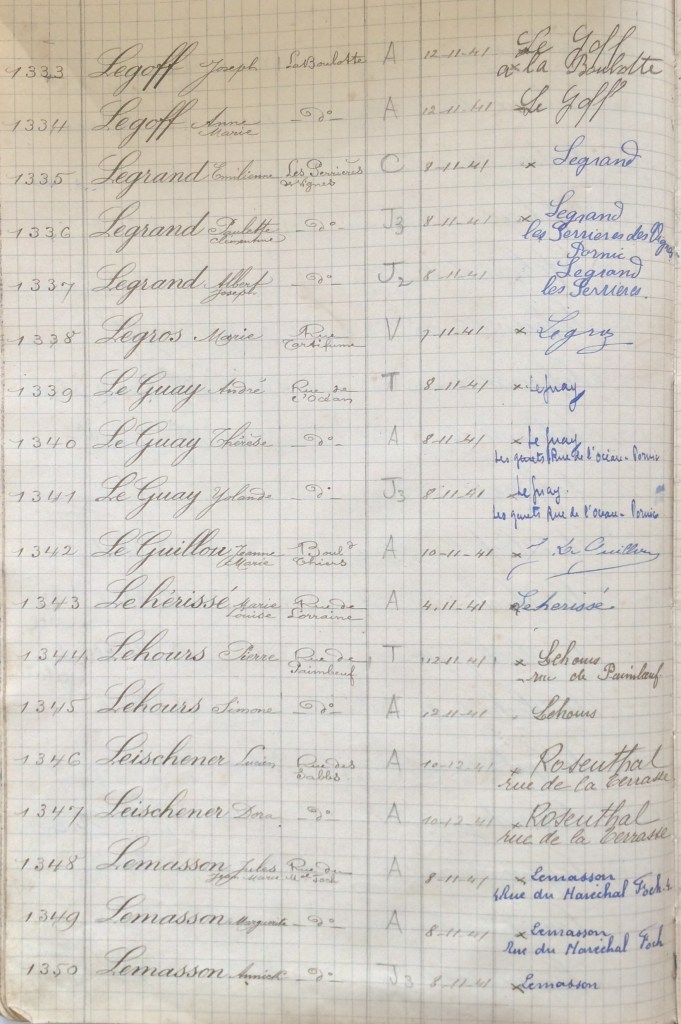 1333 Legoff Joseph La Boulotte A 12-11-41 Le Goff
x à la Boulotte
1334 Legoff Anne Marie -do- A 12-11-41 Le Goff
1335 Legrand Emilienne Les Perrières C 8-11-41 x Legrand
1336 Legrand Paulette -do- J3 8-11-41 x Legrand
les Perrieres des
Pornic
1337 Legrand Albert Joseph -do- J2 8-11-41 Legrand
les Perrieres.
1338 Legros Marie Rue Tartifume V 7-11-41 x Legros
1339 Le Guay André Rue de l'Océan T 8-11-41 x Le Guay
1340 Le Guay Thérèse -do- A 8-11-41 x Le Guay
Rue de l'Océan - Pornic
1341 Le Guay Yolande -do- J3 8-11-41 Le Guay.
Rue de l'Océan - Pornic
1342 Le Guillou Jeanne Marie Boul.d Thiers A 10-11-41 x Le Guillou
1343 Lehérissé Marie Louise Rue de Lorraine A 4-11-41 Leherissé
1344 Lehours Pierre Rue de Paimbœuf T 12-11-41 x Lehours
rue de Paimbœuf
1345 Lehours Simone -do- A 12-11-41 Lehours
1346 Leischener Lucien Rue des Sables A 10-12-41 x Rosenthal
rue de la Terrasse
1347 Leischener Dora -do- A 10-12-41 x Rosenthal
rue de la Terrasse
1348 Lemasson Jules Jean Marie Rue du Mal Foch A 8-11-41 x Lemasson
Rue du Maréchal Foch
1349 Lemasson Marguerite -do- A 8-11-41 x Lemasson
Rue du Maréchal Foch
1350 Lemasson Annick -do- J3 8-11-41 x Lemasson